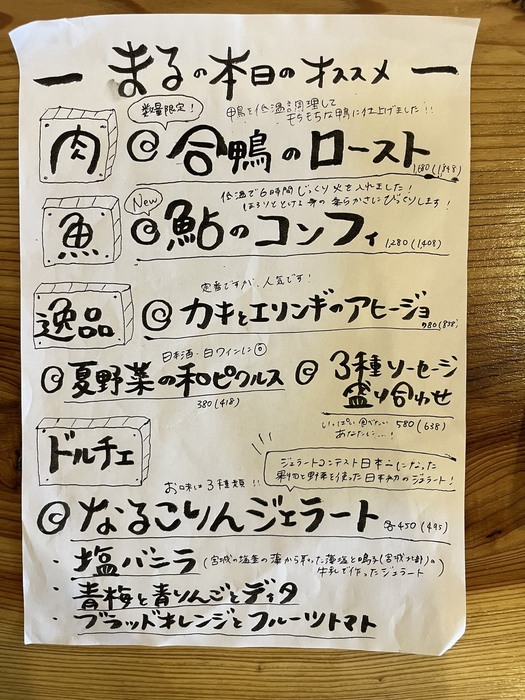 ー まるの本日のオススメ ー
数量限定!
鴨を低温調理して
もちもちな鴨に仕上げました!!
肉
合鴨のロースト
1,680(1,848)
New
低温で6時間じっくり火を入れました!
ほろりととける身の柔らかさにびっくりします!
魚
鮎のコンフィ 1,280(1,408)
定番ですが、人気です!
逸品
カキとエリンギのアヒージョ
780(858)
日本酒・白ワインに◎
夏野菜の和ピクルス
380(418)
3種ソーセージ
盛り合わせ
いっぱい食べたい
あなたに…! 580(638)
ドルチェ
ジェラートコンテスト日本一になった
果物と野菜を使った日本初のジェラート!
お味は3種類!!
なるこりんジェラート 各450(495)
・塩バニラ (宮城の塩釜の藻から取った藻塩と鳴子(宮城北部)の
牛乳で作ったジェラート
・青梅と青りんごとディタ
・ブラッドオレンジとフルーツトマト